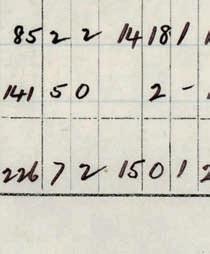 85 2 2 14 18 1
141 5 0 2 -
226 7 2 15 0 1 2